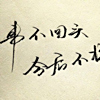 事不回头
今后不